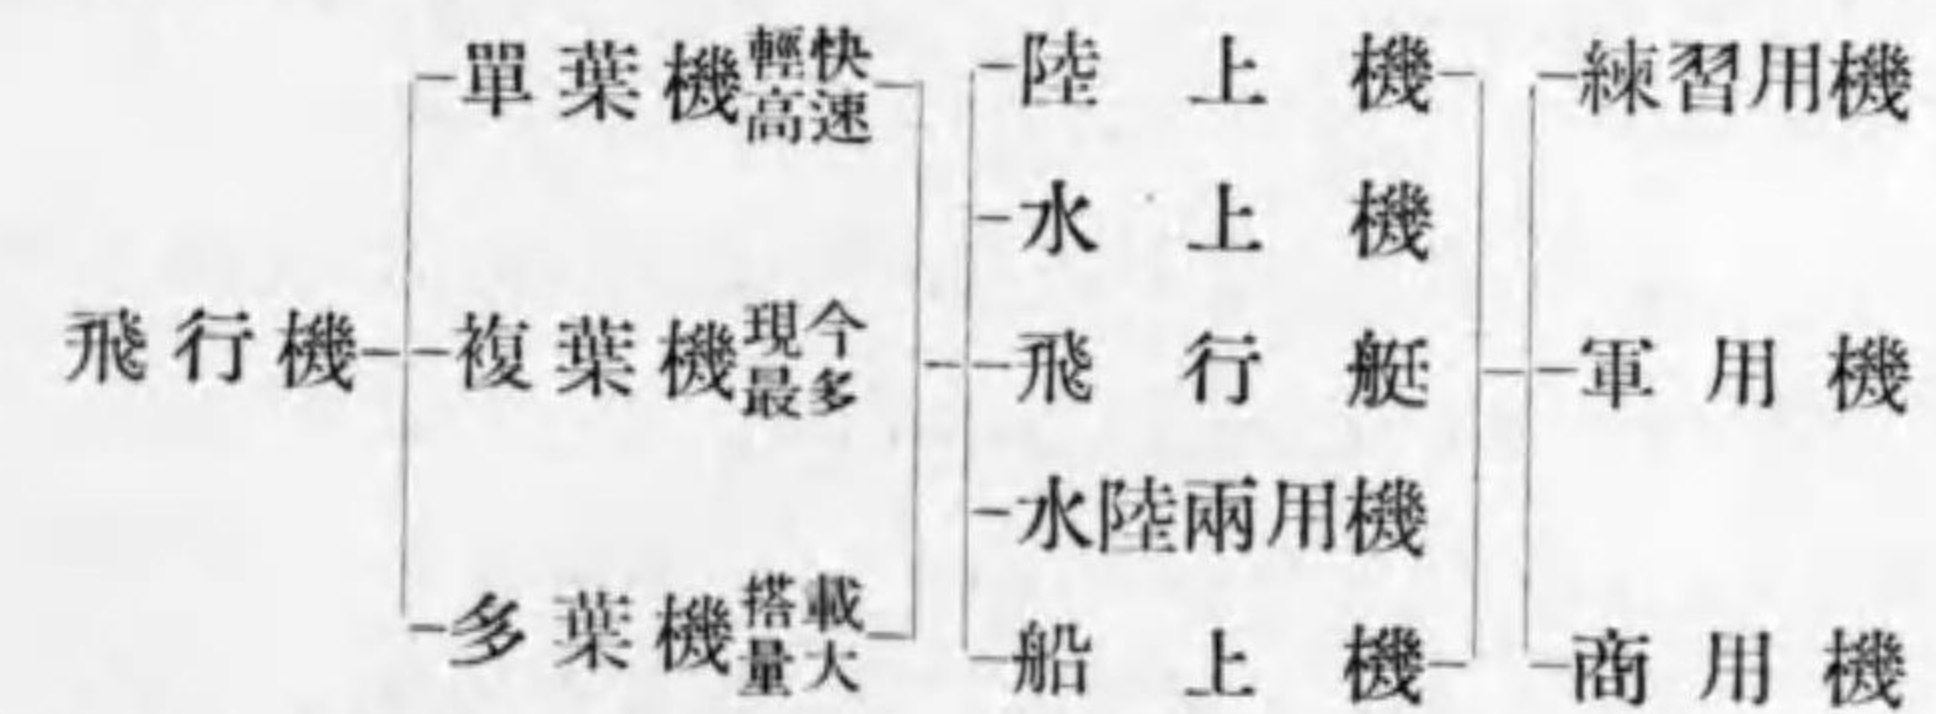 飛行機
單葉機 輕快高速
複葉機 現今最多
多葉機 搭載量大
陸上機
水上機
飛行艇
水陸兩用機
船上機
練習用機
軍用機
商用機